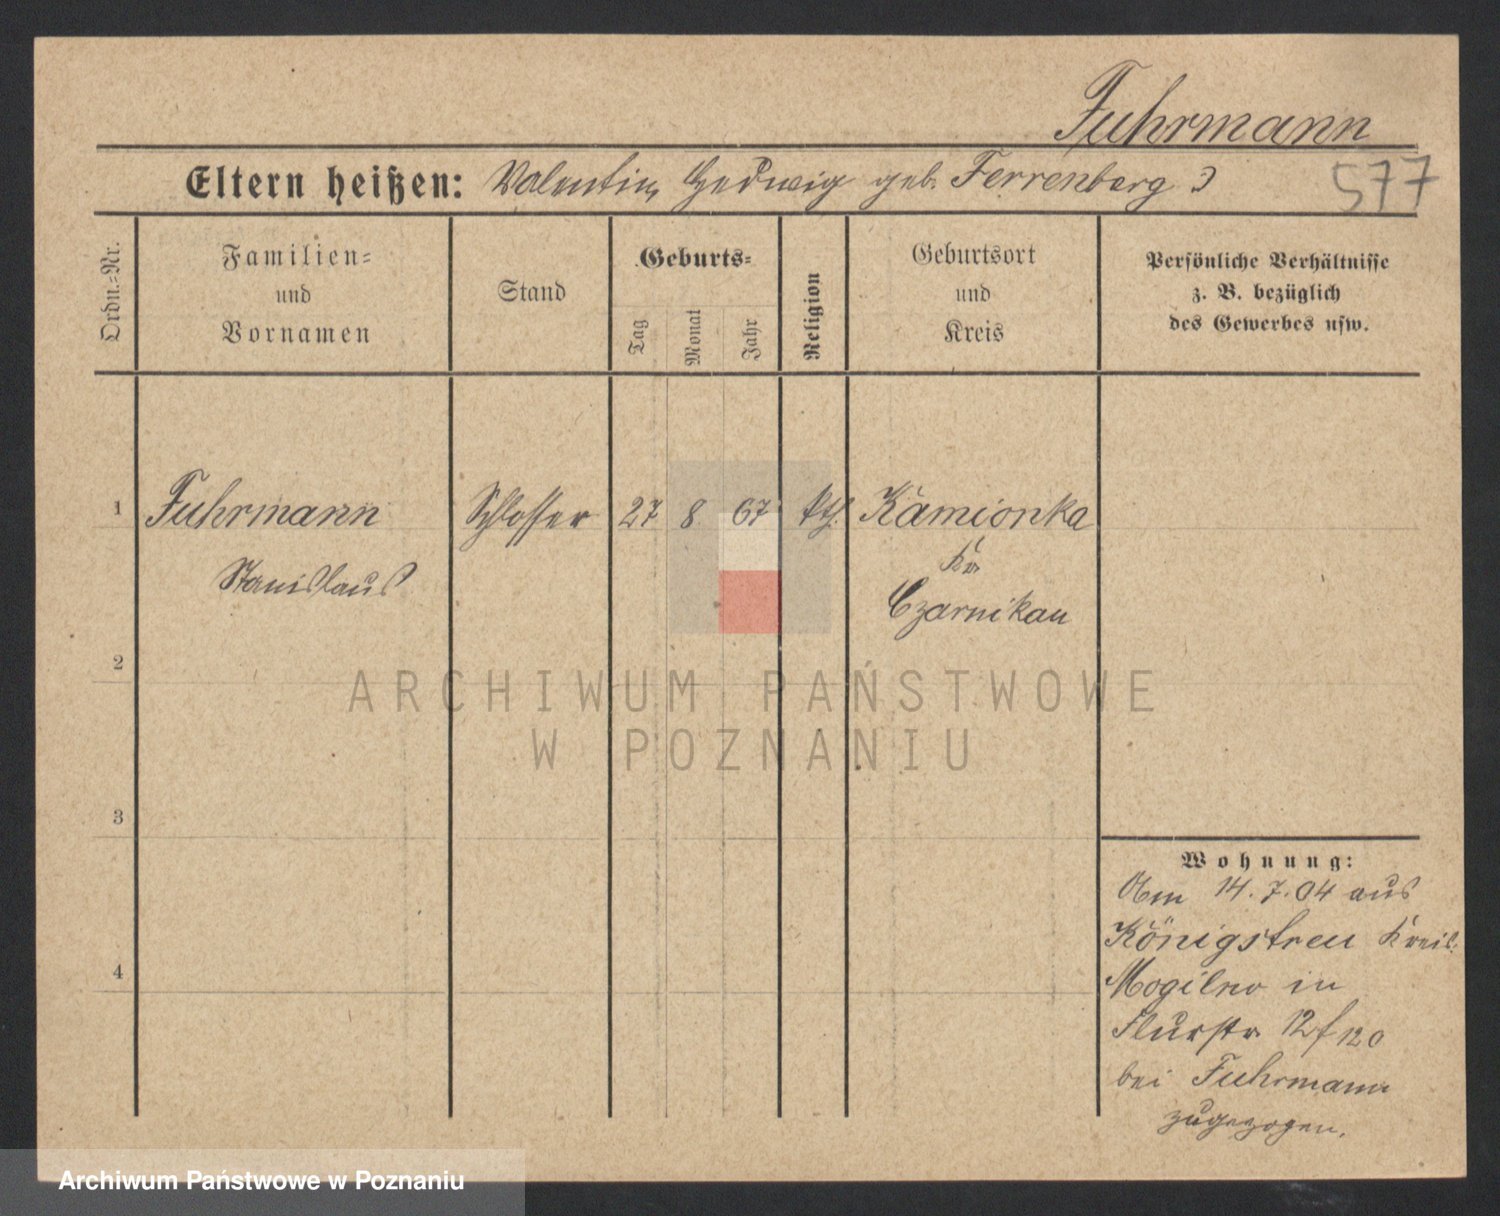 Fuhrmann
Eltern heißen: Valentin, Hedwig geb. Ferrenberg
577
Ordn.-Nr.
Familien- und Vornamen
Stand
Geburts-
Tag
Monat
Jahr
Religion
Geburtsort und Kreis
Persönliche Verhältnisse
z. B. bezüglich
des Gewerbes usw.
1 Fuhrmann Schlosser 27 8 67 kth. Kamionka
Stanislaus
Kr.
Czarnikau
2
3
4
ARCHIWUM PAŃSTWOWE
W POZNANIU
Wohnung:
Am 14.7.04 aus
Königstreu Kreis
Mogilno in
Flurstr. 12
bei Fuhrmann
zugezogen.
Archiwum Państwowe w Poznaniu